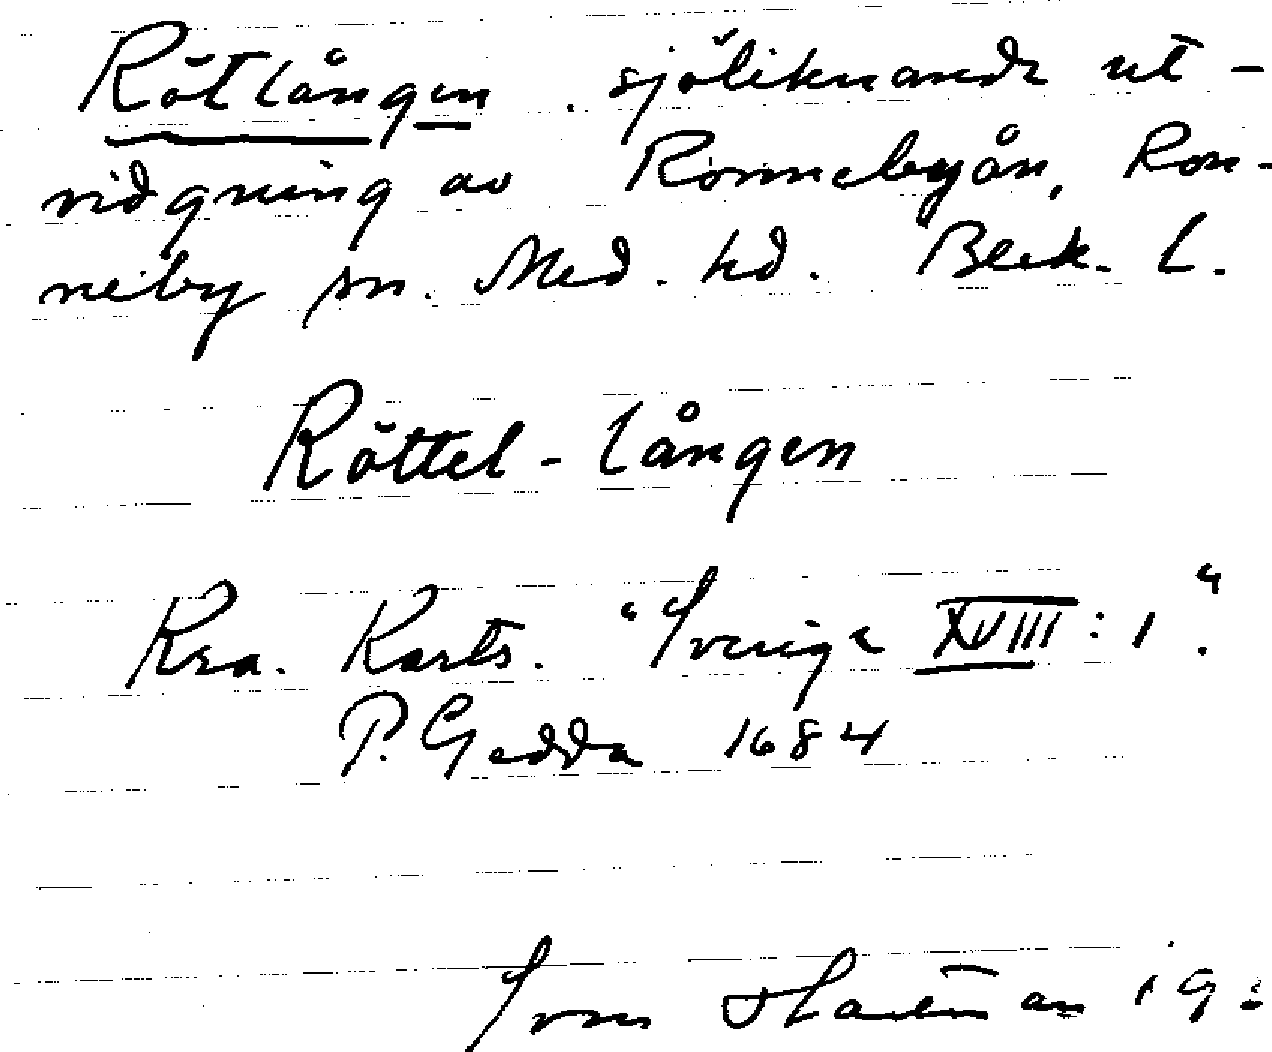 Rötlången. sjöliknande ut-
vidgning av Ronnebyån, Ron-
neby sn. Med. hd. Blek. l.
Röttel-Lången
Kra. Karts. "Sverige XVIII:1".
P. Gedda 1684
Sven